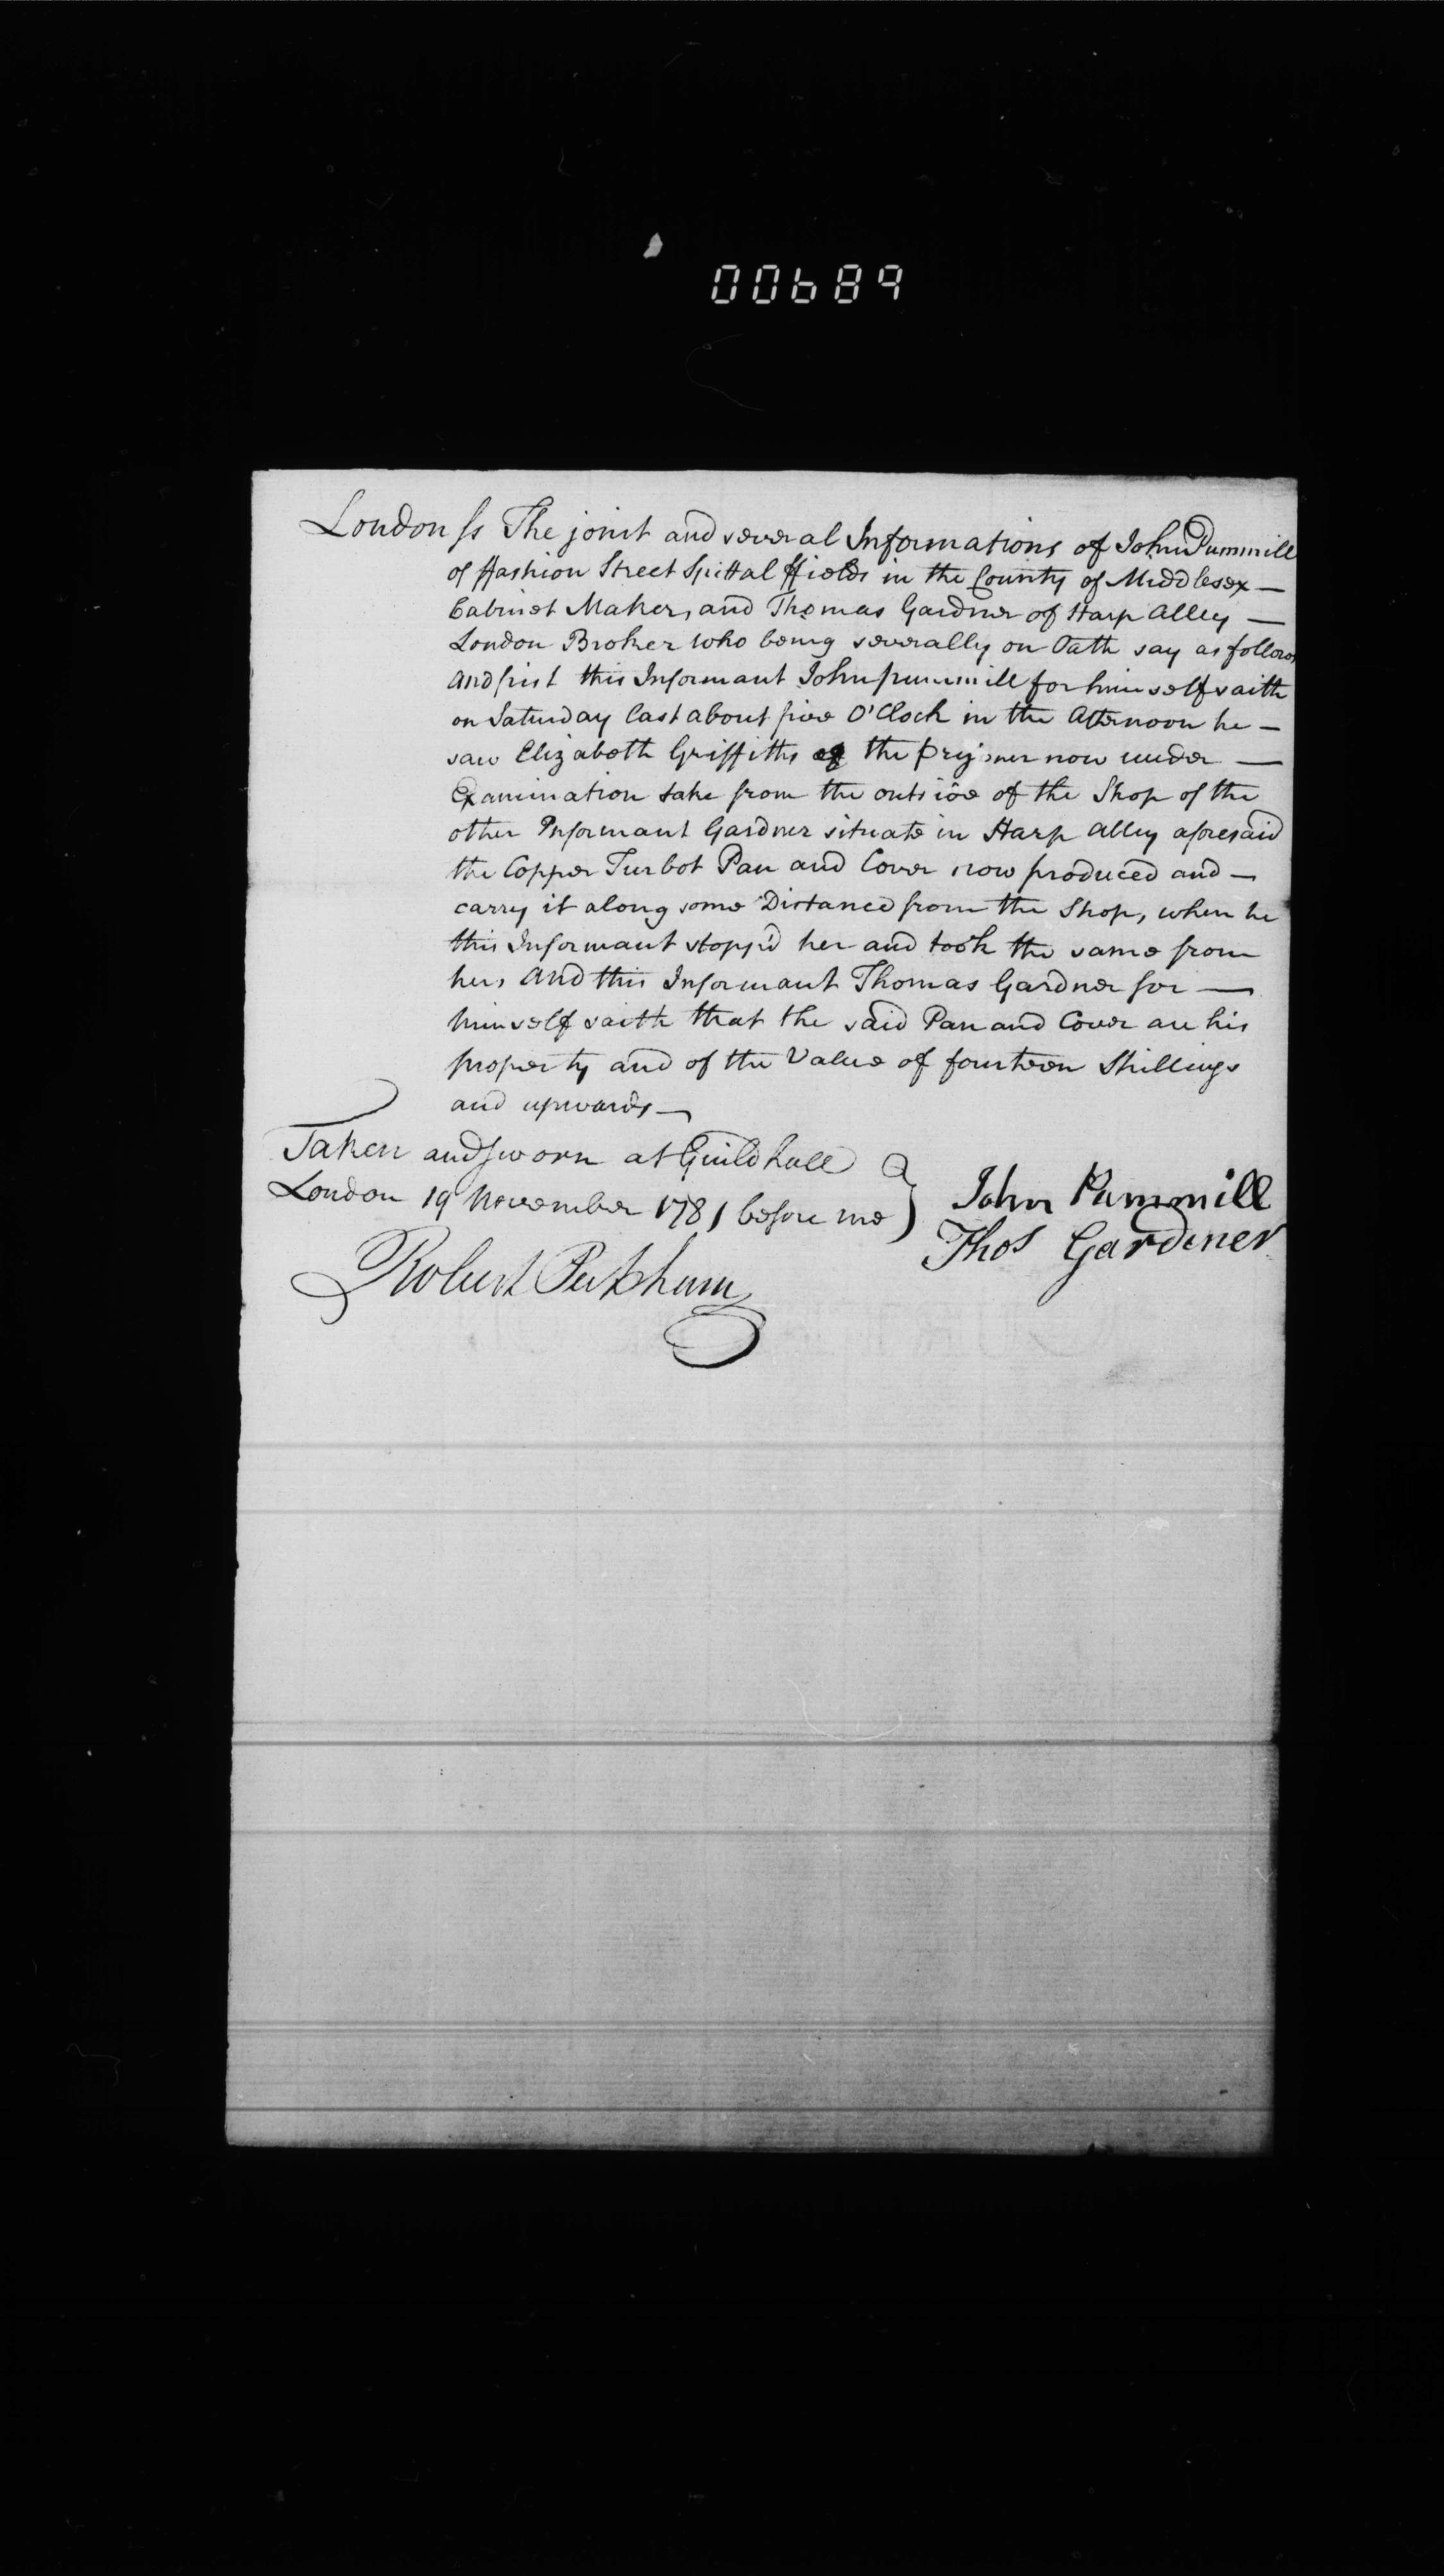 00689
London ss The joint and several Informations of John Pummill
of ffashion Street Spittal ffields in the County of Middlesex —
Cabinet Maker, and Thomas Gardner of Harp Alley —
London Broker who being severally on Oath say as follows
and first this Informant John pummill for himself saith
on Saturday last about five O'Clock in the Afternoon he —
saw Elizabeth Griffiths the Prisoner now under —
Examination take from the outside of the Shop of the
other Informant Gardner situate in Harp Alley aforesaid
the Copper Turbot Pan and Cover now produced and —
carry it along some Distance from the Shop, when he
this Informant stopp'd her and took the same from
her, And this Informant Thomas Gardner for —
himself saith that the said Pan and Cover are his
property and of the Value of fourteen Shillings
and upwards —
Taken and sworn at Guildhall }
London 19 November 1781 before me }
John Pummill
Thos Gardener
Robert Peckham